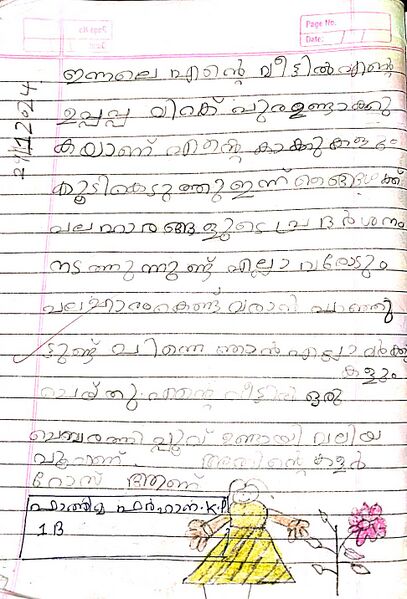 Page No.
Date:
24/12024
ഇന്നലെ എൻ്റെ വീട്ടിൽ എൻ്റെ
ഉപ്പപ്പ വിറക് പുര ഉണ്ടാക്കു
കയാണ് എൻ്റെ കാക്കു കളും
കൂടികൊടുത്തു ഇന്ന് ഞങ്ങൾക്ക്
പലഹാരങ്ങളുടെ പ്രദർശനം
നടത്തുന്നുണ്ട് എല്ലാവരോടും
പലഹാരം കൊണ്ട് വരാൻ പറഞ്ഞി
ട്ടുണ്ട് പിന്നെ ഞാൻ എല്ലാ വർക്കു
കളും
ചെയ്തു. എൻ്റെ വീട്ടിൽ ഒരു
ചെമ്പരത്തി പ്പൂവ് ഉണ്ടായി വലിയ
പൂവാണ്. അതിൻ്റെ കളർ
റോസ് ആണ്
ഫാത്തിമ ഫർഹാന. K.P
1 B